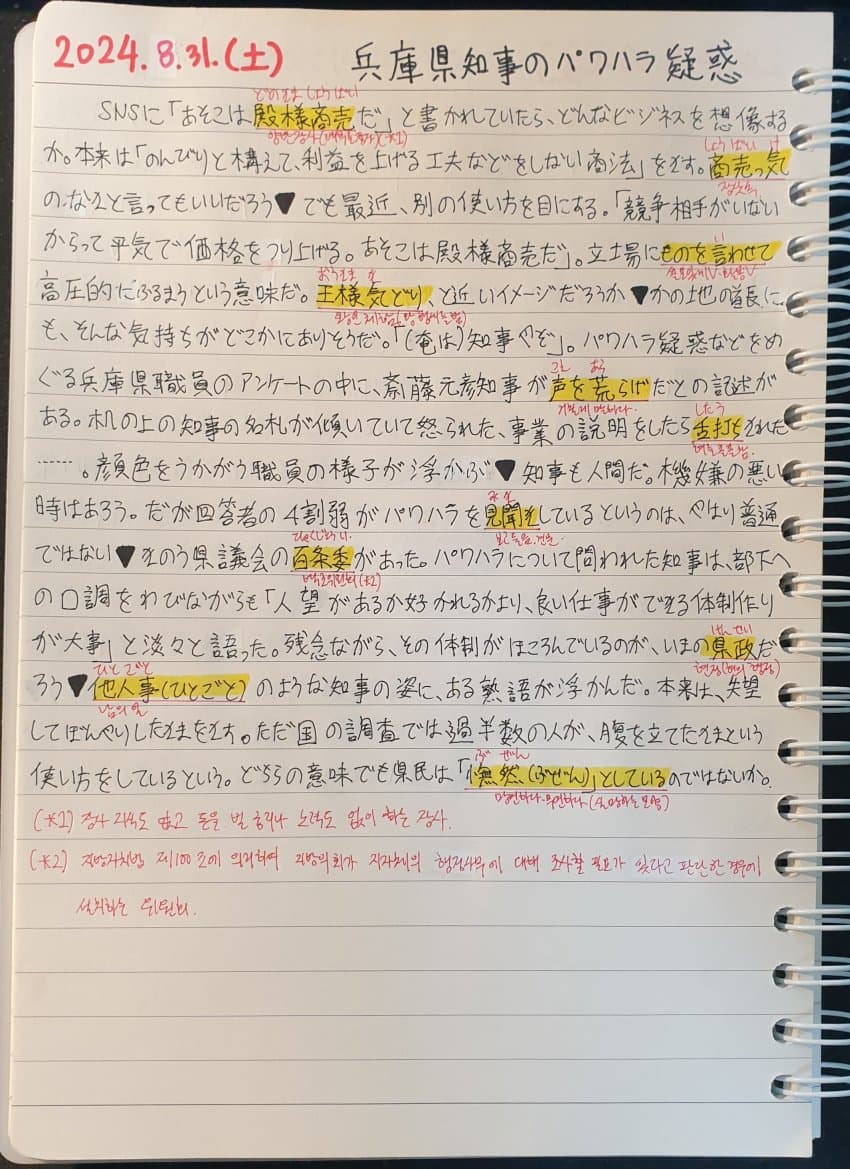 2024.8.31.(土) 兵庫県知事のパワハラ疑惑
とのさましょうばい
SNSに「あそこは殿様商売だ」と書かれていたら、どんなビジネスを想像する
しょうばい け
か。本来は「のんびりと構えて、利益を上げる工夫などをしない商法」をさす。商売っ気
のなさと言ってもいいだろう▼でも最近、別の使い方を目にする。「競争相手がいない
い
からって平気で価格をつり上げる。あそこは殿様商売だ」。立場にものを言わせて
おうさま き
高圧的にふるまうという意味だ。王様気どり、と近いイメージだろうか▼かの地の首長に
も、そんな気持ちがどこかにありそうだ。「(俺は)知事やぞ」。パワハラ疑惑などをめ
こえ あら
ぐる兵庫県職員のアンケートの中に、斎藤元彦知事が声を荒らげたとの記述が
거칠게 말하다. したう
ある。机の上の知事の名札が傾いていて怒られた、事業の説明をしたら舌打ちされた
……。顔色をうかがう職員の様子が浮かぶ▼知事も人間だ。機嫌の悪い
みき
時はあろう。だが回答者の4割弱がパワハラを見聞きしているというのは、やはり普通
ひゃくじょうい 보고 들음.
ではない▼きのう県議会の百条委があった。パワハラについて問われた知事は、部下へ
백조위원회(*2)
の口調をわびながらも「人望があるか好かれるかより、良い仕事ができる体制作り
けんせい
が大事」と淡々と語った。残念ながら、その体制がほころんでいるのが、いまの県政だ
ひとごと
ろう▼他人事(ひとごと)のような知事の姿に、ある熟語が浮かんだ。本来は、失望
남의 일
してぼんやりしたさまをさす。ただ国の調査では過半数の人が、腹を立てたさまという
ぶぜん
使い方をしているという。どちらの意味でも県民は「憮然(ぶぜん)」としているのではないか。
(*1) 장사 지식도 없고 돈을 벌 궁리나 노력도 없이 하는 장사.
(*2) 지방자치법 제100조에 의거하여 지방의회가 지자체의 행정사무에 대해 조사할 필요가 있다고 판단한 경우에
설치하는 위원회.